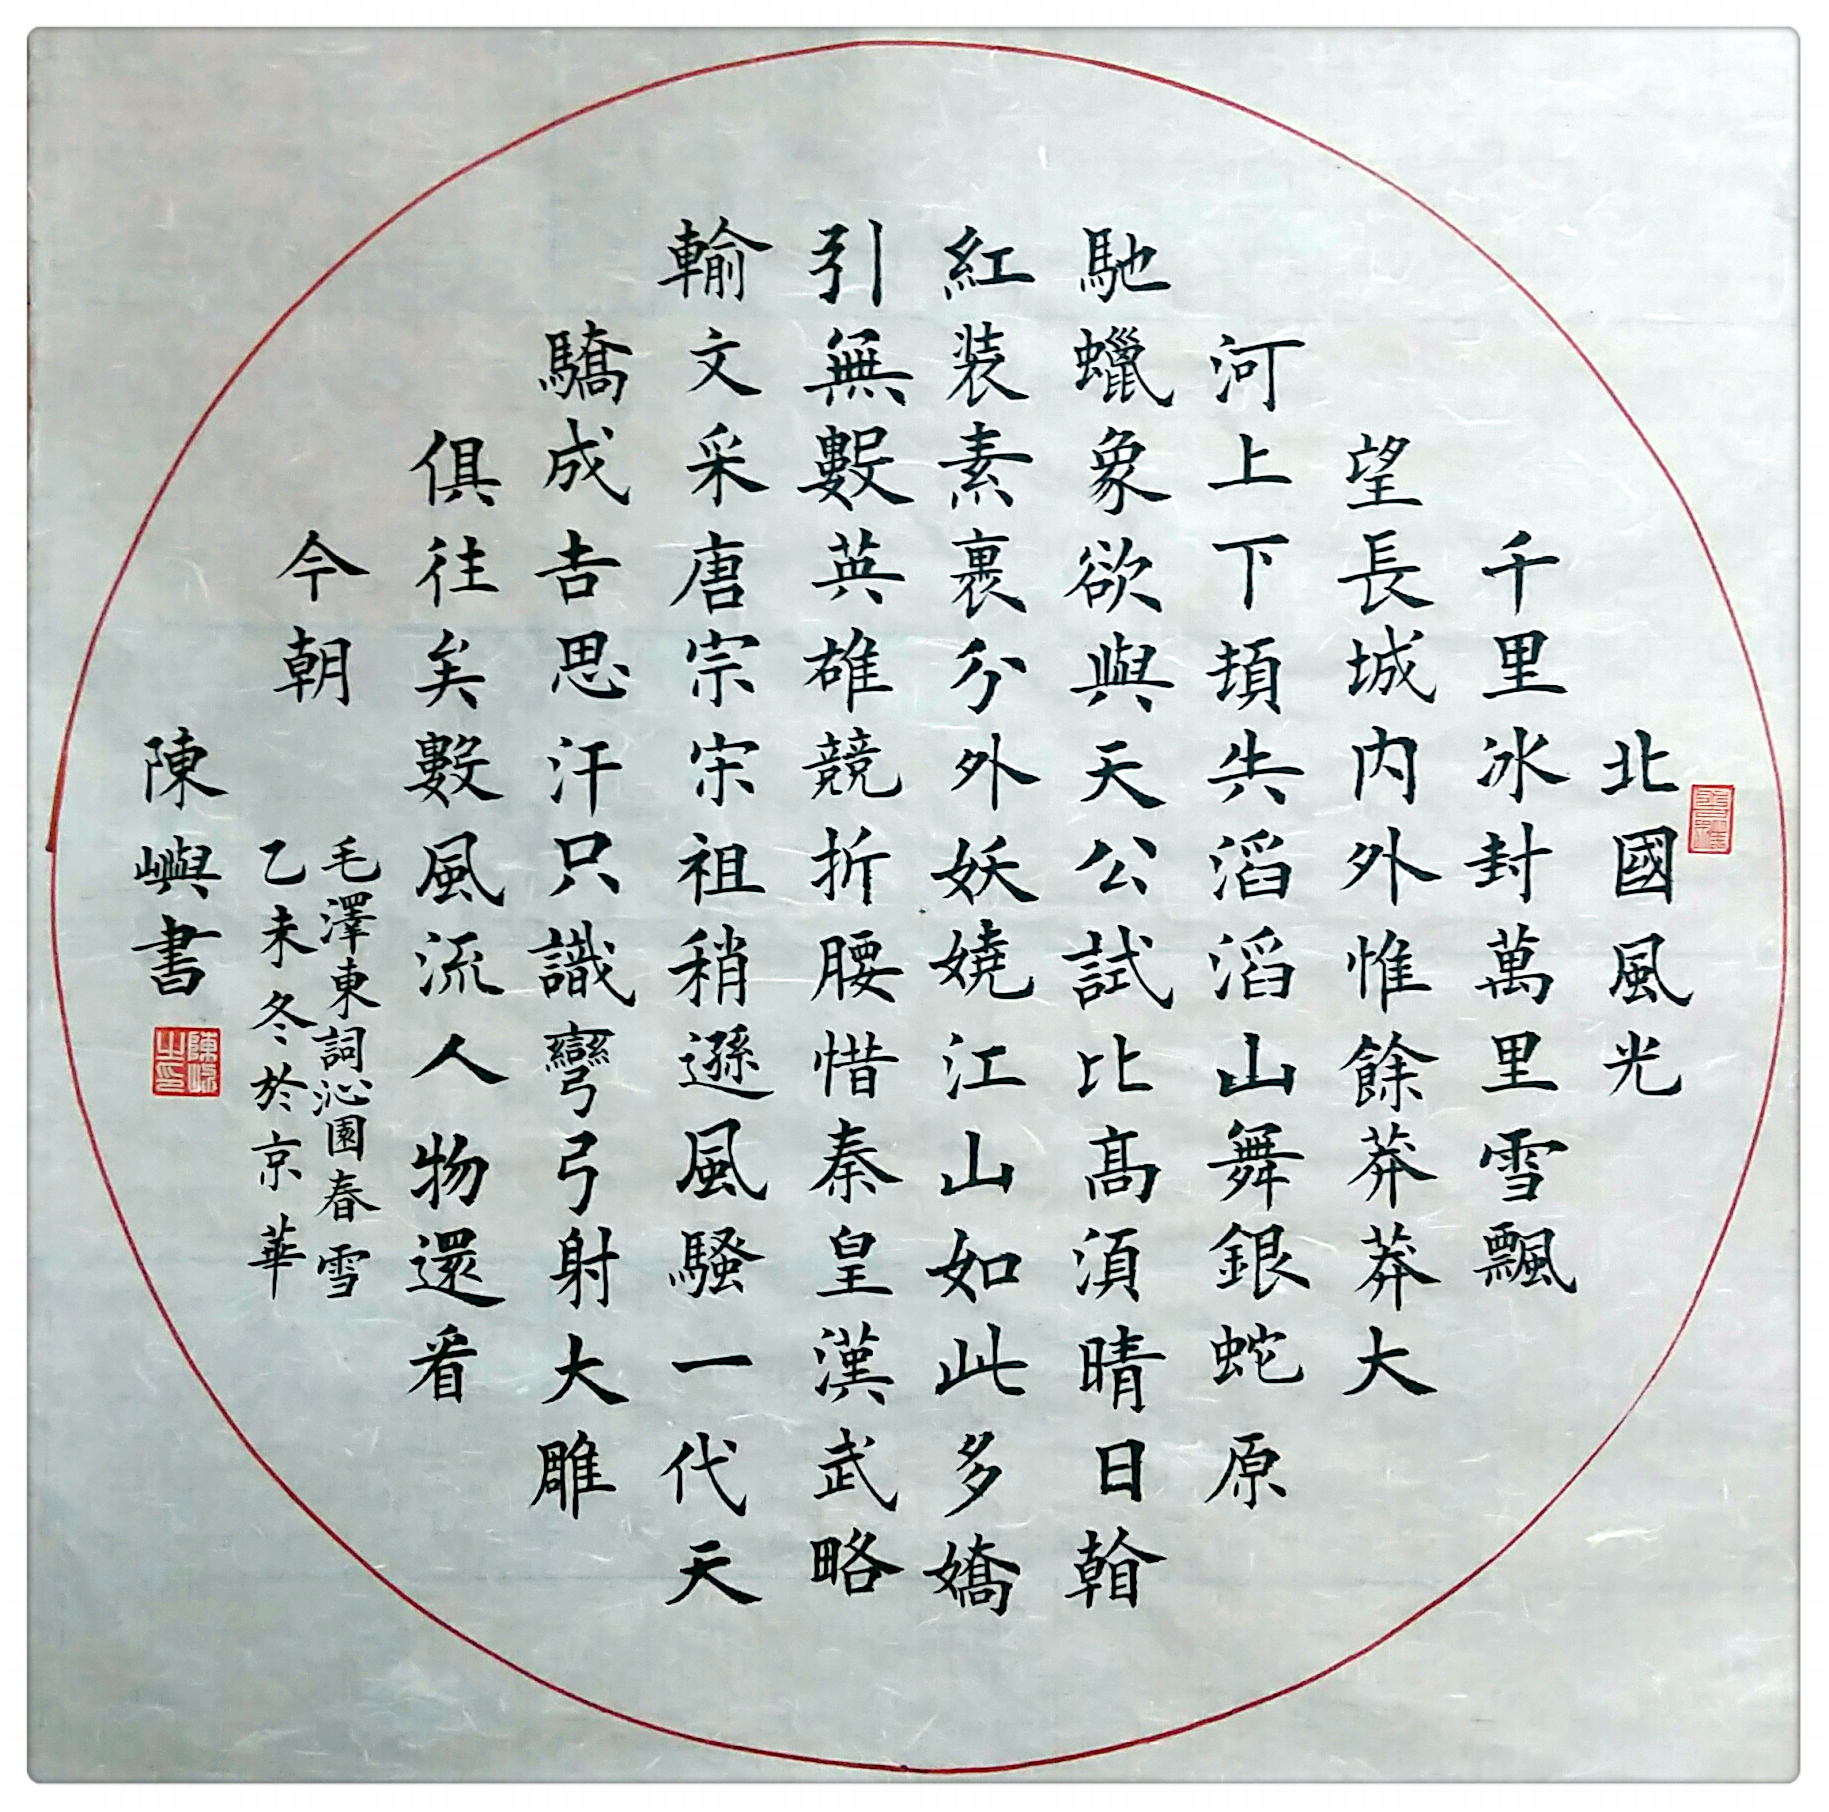 北國風光
千里冰封萬里雪飄
望長城内外惟餘莽莽大
河上下頓失滔滔山舞銀蛇原
馳蠟象欲與天公試比高須晴日看
紅装素裹分外妖嬈江山如此多嬌
引無數英雄競折腰惜秦皇漢武略
輸文采唐宗宋祖稍遜風騷一代天
驕成吉思汗只識彎弓射大雕
俱往矣數風流人物還看
今朝
毛澤東詞沁園春雪
乙未冬於京華
陳嶼書
陳嶼之印